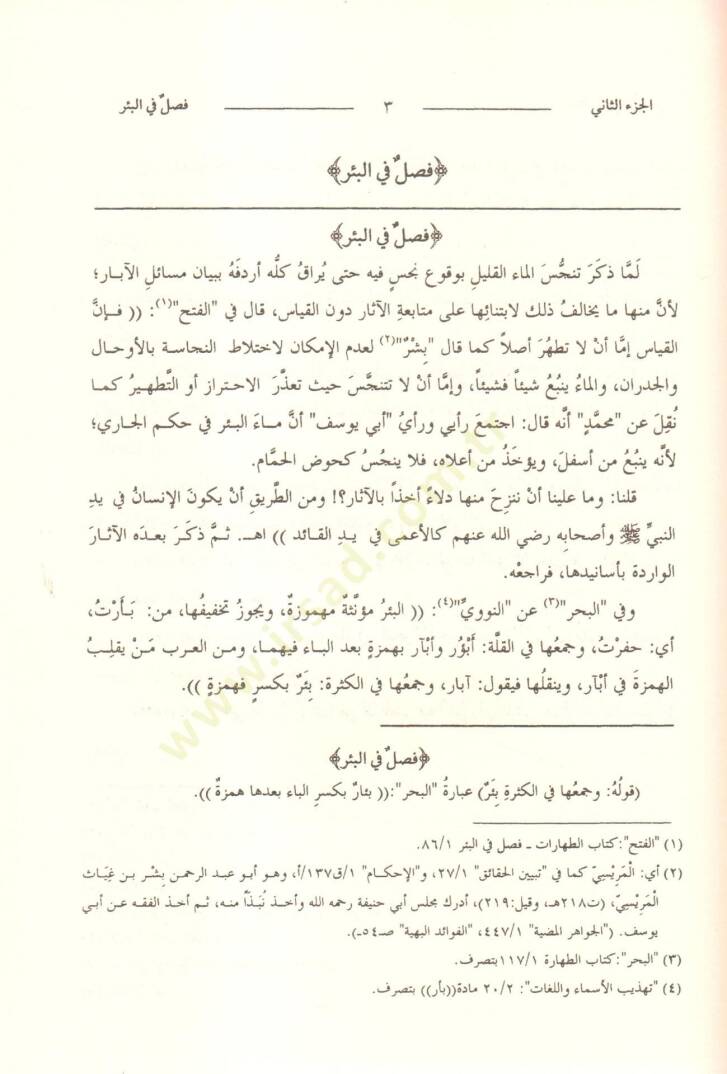 الجزء الثاني ـــــــ ٣ ـــــــ فصلٌ في البئر
﴿فصلٌ في البئر﴾
﴿فصلٌ في البئر﴾
لَمَّا ذكَرَ تنجُّسَ الماء القليل بوقوع نجسٍ فيه حتى يُراقُ كلُّه أردفَهُ ببيان مسائلِ الآبار؛
لأنَّ منها ما يخالفُ ذلك لابتنائِها على متابعةِ الآثار دون القياس، قال في "الفتح"(١): (( فـإنَّ
القياس إمَّا أنْ لا تطهُرَ أصلاً كما قال "بِشْرٌ"(٢) لعدم الإمكان لاختلاط النجاسة بالأوحال
والجدران، والماءُ ينبُعُ شيئاً فشيئاً، وإمَّا أنْ لا تتنجَّسَ حيث تعذَّرَ الاحتراز أو التَّطهيرُ كمـا
نُقِلَ عن "محمَّدٍ" أنَّه قال: اجتمعَ رأيي ورأيُ "أبي يوسف" أنَّ مـاءَ البـئر في حكـم الجـاري؛
لأنَّه ينبُعُ من أسفلَ، ويؤخَذُ من أعلاه، فلا ينجُسُ كحوض الحمَّام.
قلنا: وما علينا أنْ ننزِحَ منها دلاءً أخذاً بالآثار؟! ومن الطَّريقِ أنْ يكونَ الإنسانُ في يدِ
النبيِّ ﷺ وأصحابِه رضي الله عنهم كالأعمى في يـدِ القـائد )) اهـ. ثـمَّ ذكَـرَ بعـدَه الآثـارَ
الواردة بأسانيدها، فراجعْه.
وفي "البحر"(٣) عن "النوويِّ"(٤): (( البئرُ مؤنَّثةٌ مهموزةٌ، ويجوزُ تخفيفُها، من: بَـأَرْتُ،
أي: حفرْتُ، وجمعُها في القلَّة: أَبْؤُر وأبْآر بهمزةٍ بعد الباء فيهمـا، ومـن العرب مَـنْ يقلِـبُ
الهمزةَ في أبْآر، وينقلُها فيقول: آبار، وجمعُها في الكثرة: بِئَرٌ بكسرٍ فهمزةٍ )).
﴿فصلٌ في البئر﴾
(قولُهُ: وجمعُها في الكثرةِ بِئَرٌ) عبارةُ "البحر":(( بئارٌ بكسرِ الباء بعدها همزةٌ )).
(١) "الفتح":كتاب الطهارات ـ فصل في البئر ٨٦/١.
(٢) أي: الْمَرِيْسِيّ كما في "تبيين الحقائق" ٢٧/١، و"الإحكام" ١/ق١٣٧/أ، وهـو أبـو عبـد الرحمـن بِشْـر بـن غِيَـاث
الْمَرِيْسيّ، (ت٢١٨هـ، وقيل:٢١٩)، أدرك مجلس أبي حنيفة رحمه الله وأخـذ نُبَـذَاً منـه، ثـم أخـذ الفقه عـن أبي
يوسف. ("الجواهر المضية" ٤٤٧/١، "الفوائد البهية" صـ٥٤ـ).
(٣) "البحر":كتاب الطهارة ١١٧/١بتصرف.
(٤) "تهذيب الأسماء واللغات": ٢٠/٢ مادة((بأر)) بتصرف.
www.irsad.com.tr